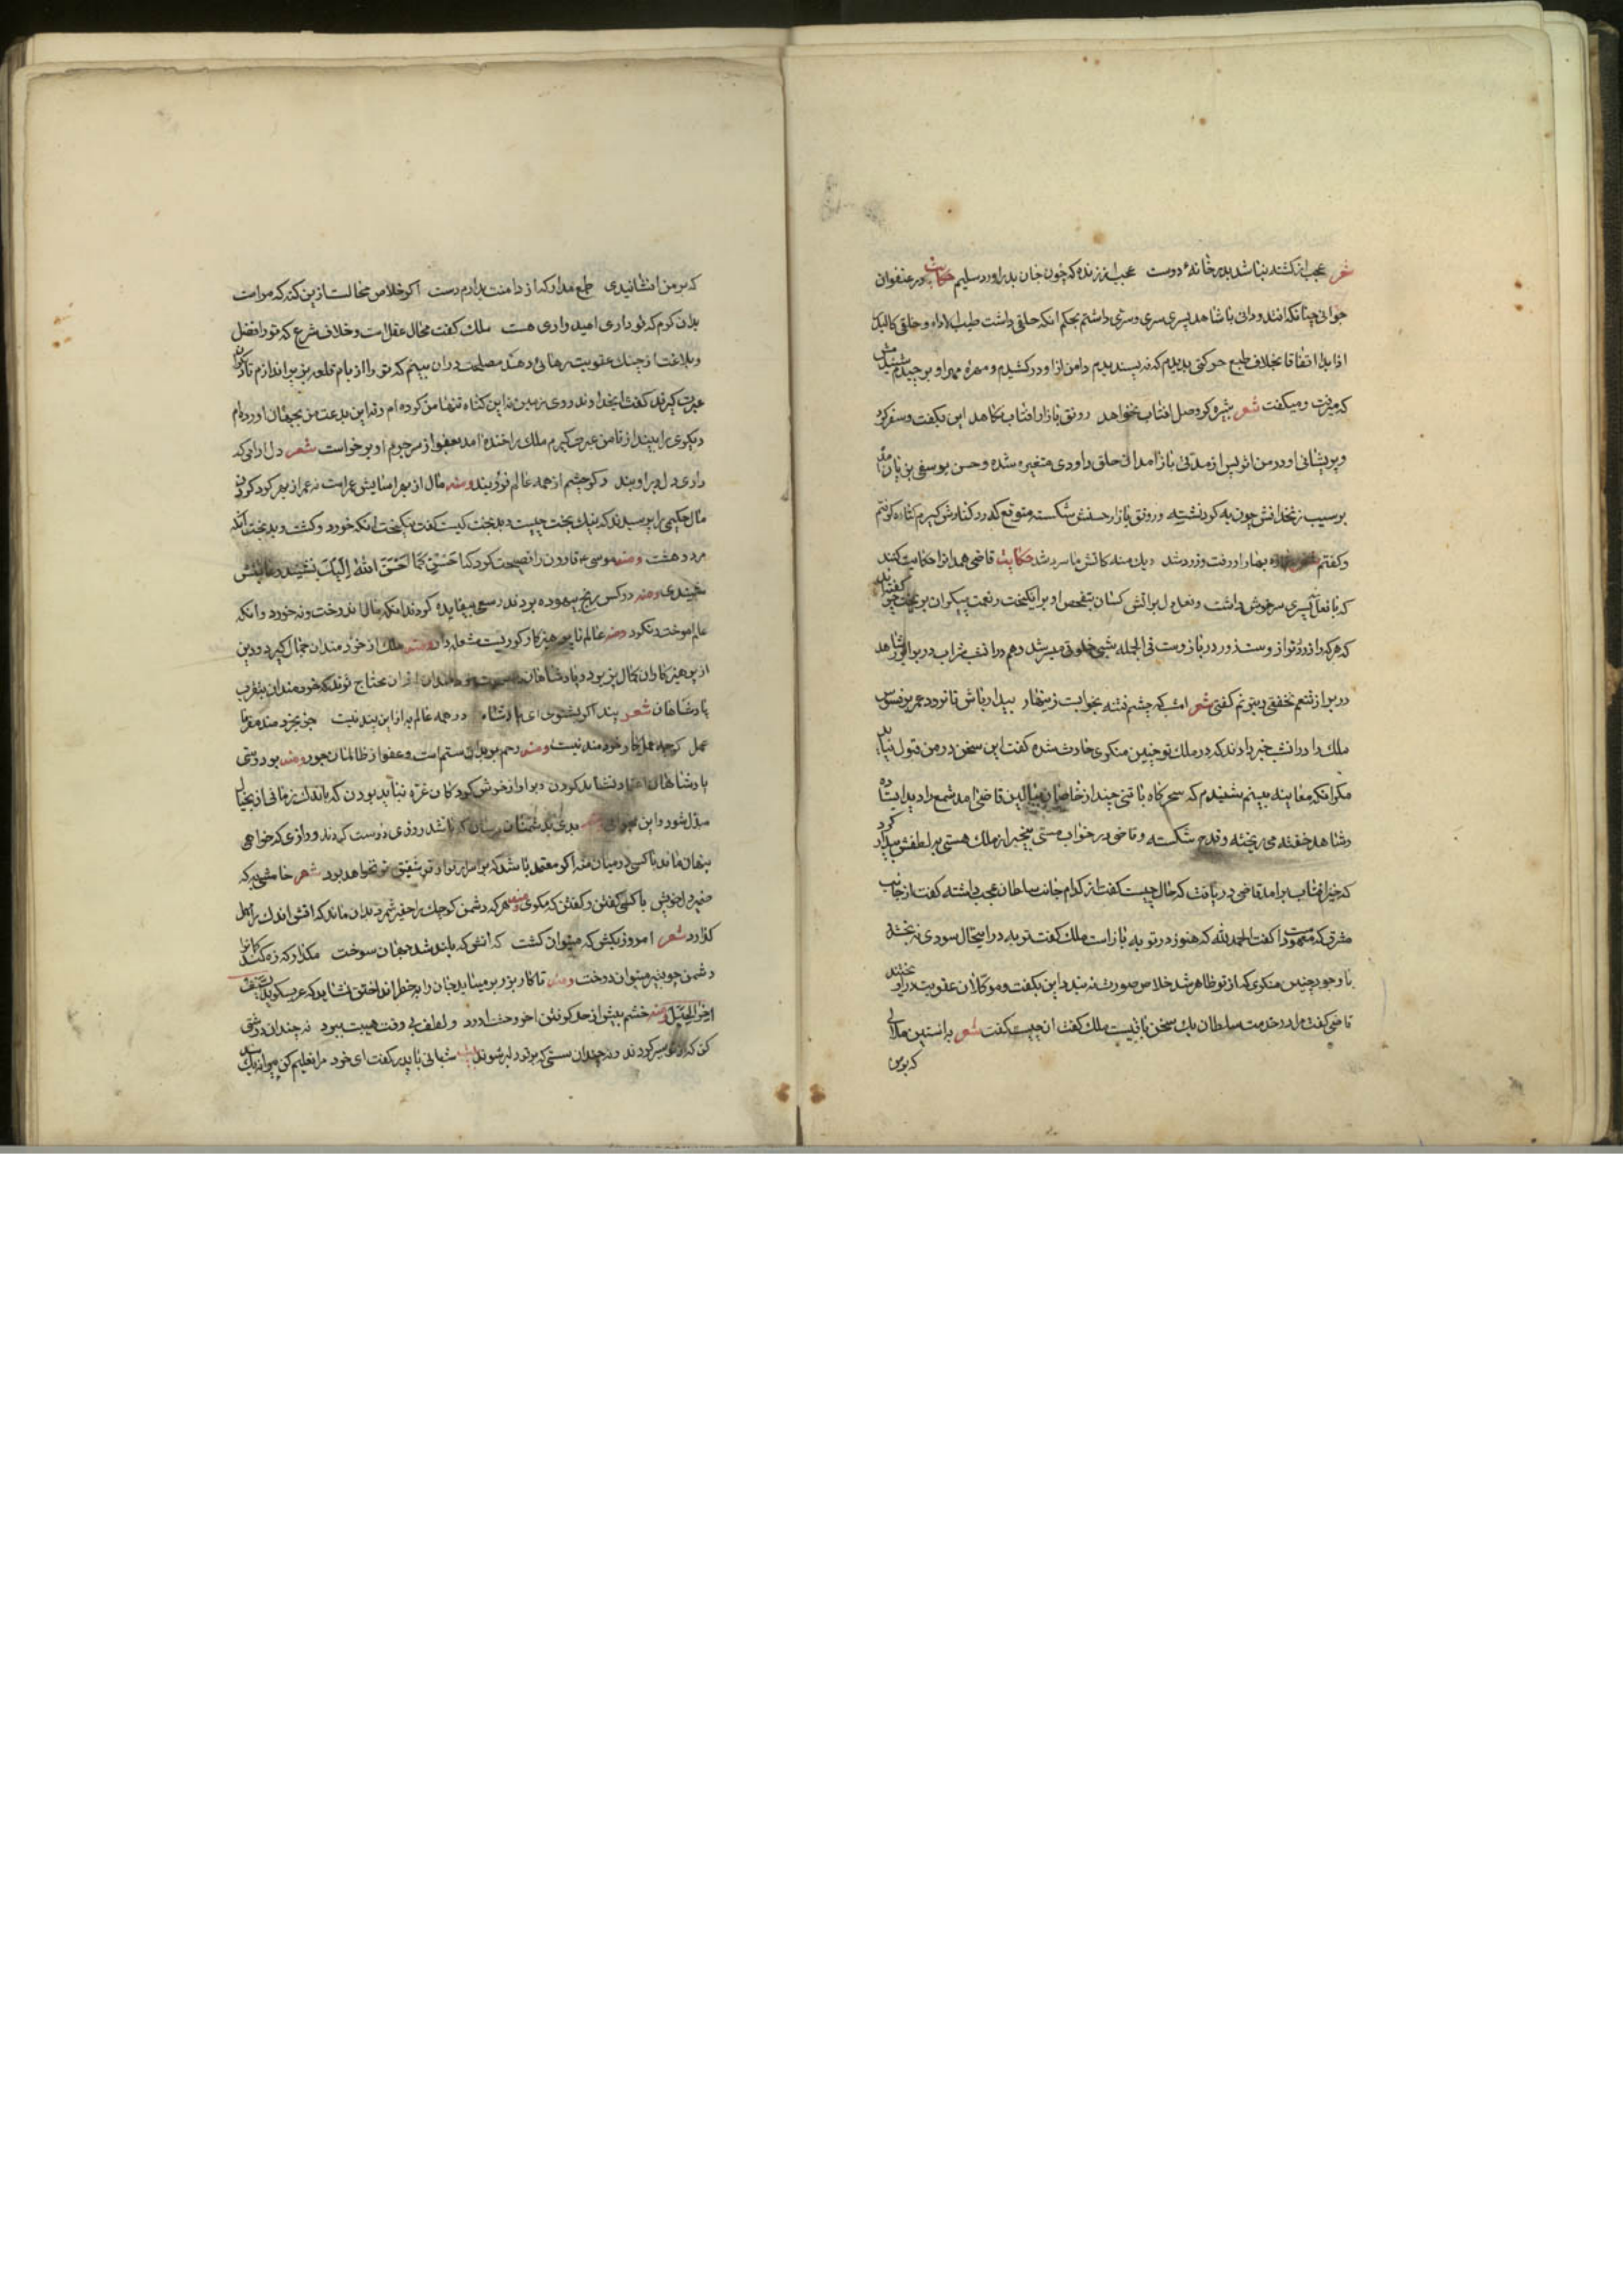 شعر عجب از کشته نباشد بدر خانهٔ دوست عجب از زنده که چون جان بدر اورد سلیم حکایت در عنفوان
جوانی چنانکه افتد و دانی با شاهد پسری سری و سری داشتم بحکم انکه حلقی داشت طیب الاداء و خلقی کالبدر
اذا بدا اتفاقا بخلاف طبع حرکتی بدیدم که نه پسندیدم دامن از او درکشیدم و مهرهٔ مهر او برچیدم شنیدمش
که میرفت و میکفت شعر شپره کر وصل افتاب نخواهد رونق بازار افتاب نکاهد این بکفت و سفر کرد
و پریشانی او در من اثر پس از مدتی باز امد ان حلق داودی متغیر شده و حسن یوسفی بزیان امده
بر سیب زنخدانش چون به کرد نشسته و رونق بازار حسنش شکسته متوقع که در کنارش کیرم کناره کرفتم
و کفتم بهار او رفت و زرد شد دیک منه کاتش ما سرد شد حکایت قاضی همدان را حکایت کنند
که با نعلبند پسری سرخوش داشت و نعل دل بر اتش کسان بتفحص او برانکیخت
که هر که را زر در ترازوست زور در بازوست فی الجمله شبی خلوتی میسر شد و هم در ان شب شراب در بر
در بر از تنعم نخفتی و بترنم کفتی شعر امشب که چشم فتنه بخوابست زینهار بیدار باش تا نرود عمر بر فسوس
ملک را در ان شب خبر دادند که در ملک تو چنین منکری حادث شده کفت این سخن در من قبول نیاید
مکر انکه معاینه ببینم شنیدم که سحرکاه با تنی چند از خاصان ببالین قاضی امد شمع را دید ایستاده
و شاهد خفته می ریخته و قدح شکسته و قاضی در خواب مستی بیخبر از ملک هستی بر لطفش بیدار کرد
که خیز افتاب برامد قاضی دریافت که حال چیست کفت از کدام جانب سلطان عجب داشته کفت از جانب
مشرق که معهود است کفت الحمد لله که هنوز در توبه باز است ملک کفت توبه در این حال سودی نه بخشد
با وجود چنین منکری که از تو ظاهر شد خلاص صورت نه بندد این بکفت و موکلان عقوبت در او
قاضی کفت مرا در خدمت سلطان یک سخن باقیست ملک کفت ان چیست کفت شعر باستین ملالی
که بر من
که بر من افشانیدی طمع مدار که از دامنت بدارم دست اکر خلاص محالست از این کنه که مراست
بدان کرم که تو داری امیدواری هست ملک کفت محال عقل است و خلاف شرع که تو را فضل
و بلاغت از چنک عقوبت رهائی دهد مصلحت در ان بینم که تو را از بام قلعه بزیر اندازم تا دیکران
عبرت کیرند کفت ای خداوند روی زمین نه این کناه تنها من کرده ام و نه این بدعت من بجهان اورده ام
دیکری را بینداز تا من عبرت کیرم ملک را خنده امد بعفو از سر جرم او برخواست شعر دل ارامی که
داری دل در او بند دکر چشم از همه عالم فرو بند ومنه مال از بهر اسایش عمر است نه عمر از بهر کرد کردن
مال حکیمی را پرسیدند که نیک بخت چیست و بدبخت کیست کفت نیکبخت انکه خورد و کشت و بدبخت انکه
مرد و هشت ومنه موسی ع قارون را نصیحت کرد که احسن کما احسن الله الیک نشنید و عاقبتش
شنیدی ومنه دو کس رنج بیهوده بردند و سعی بیفایده کردند انکه مال اندوخت و نه خورد و انکه
علم اموخت و نکرد ومنه عالم ناپرهیزکار کوریست مشعله دار ومنه ملک از خردمندان جمال کیرد و دین
از پرهیزکاران کمال پذیرد پادشاهان محتاج ترند که خردمندان بتقرب
پادشاهان شعر پند اکر بشنوی ای پادشاه در همه عالم به از این پند نیست جز بخردمند مفرما
عمل کرچه عمل کار خردمند نیست ومنه رحم بر بدان ستم است و عفو از ظالمان جور ومنه بر دوستی
پادشاهان اعتماد نشاید کردن و بر اواز خوش کودکان غره نباید بودن که باندک زمانی از بخیال
مبدل شود و این بدی بدشمنان مرسان که باشد روزی دوست کردند و رازی که خواهی
پنهان ماند با کسی در میان منه اکر معتمد باشد که بر اسرار تو از تو شفیق تر نخواهد بود شعر خامشی به که
ضمیر دل خویش با کسی کفتن و کفتن که مکوی ومنه هر که دشمن کوچک را حقیر شمرد بدان ماند که اتش اندک را مهمل
کذارد شعر امروز بکش که میتوان کشت کاتش که بلند شد جهان سوخت مکذار که زه کند کمان را
دشمن چو بتیر میتوان دوخت ومنه تا کار بزر برمیاید جان را بخطر انداختن نشاید که عرب کوید السیف
اخر الحیل ومنه خشم بیش از حد کرفتن اخر وحشت ارد و لطف بی وقت هیبت ببرد نه چندان درشتی
کن که از تو سیر کردند و نه چندان سستی که بر تو دلیر شوند شعر شبانی با پدر کفت ای خرد مرا تعلیم کن پیرانه یک پند